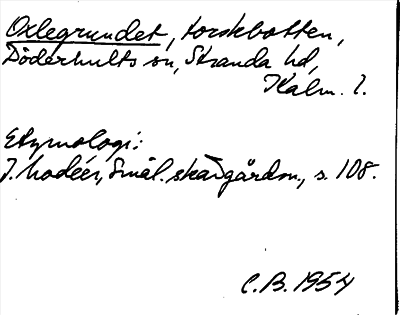 Oxlegrundet, torskbotten,
Döderhults sn, Stranda hd,
Kalm. l.
Etymologi:
J. Modéer, Smål. skärgårdsn., s. 108.
C.B. 1954